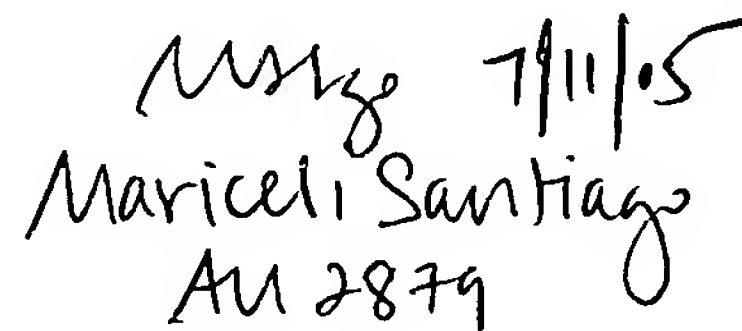 7/11/05
Mariceli Santiago
AU 2879